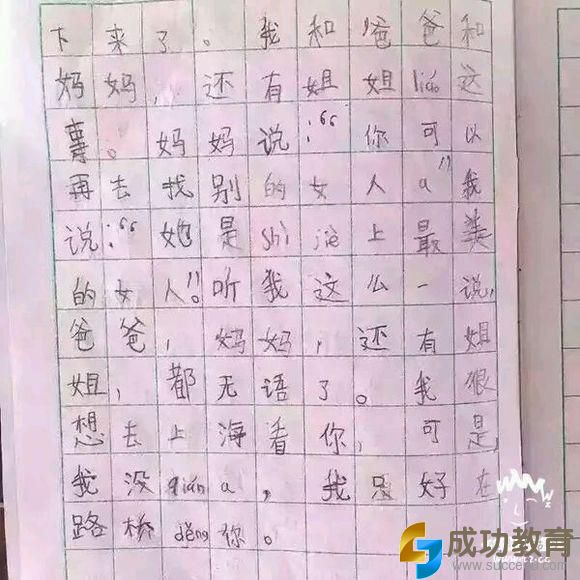 下来了。我和爸爸和
妈妈，还有姐姐liáo这
事。妈妈说：“你可以
再去找别的女人a”我
说：“她是shì jiè上最美
的女人”。听我这么一说，
爸爸，妈妈，还有姐
姐，都无语了。我狠
想去上海看你，可是
我没qián a，我只好在
路桥děng你。
成功教育
www.succezz.com